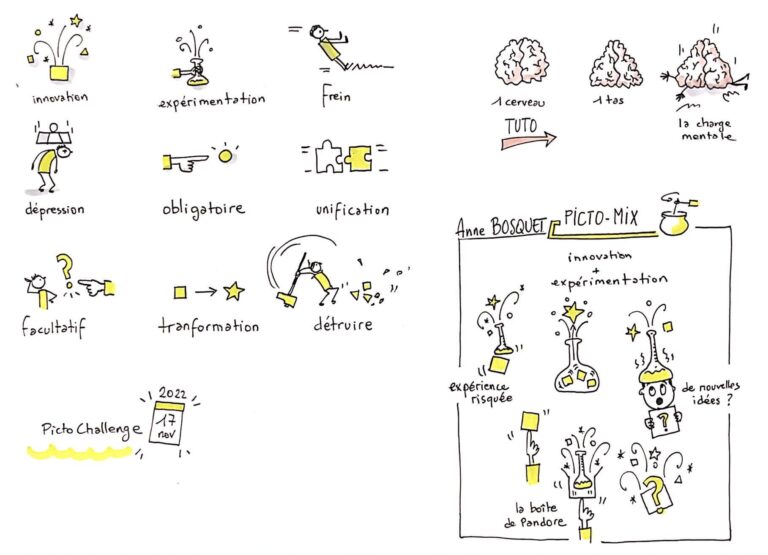 innovation
expérimentation
Frein
dépression
obligatoire
unification
facultatif
tranformation
détruire
Picto Challenge
2022
17
nov
1 cerveau
1 tas
la charge
mentale
TUTO
Anne BOSQUET
PICTO-MIX
innovation
+
expérimentation
expérience
risquée
de nouvelles
idées ?
?
la boîte
de Pandore
?
?